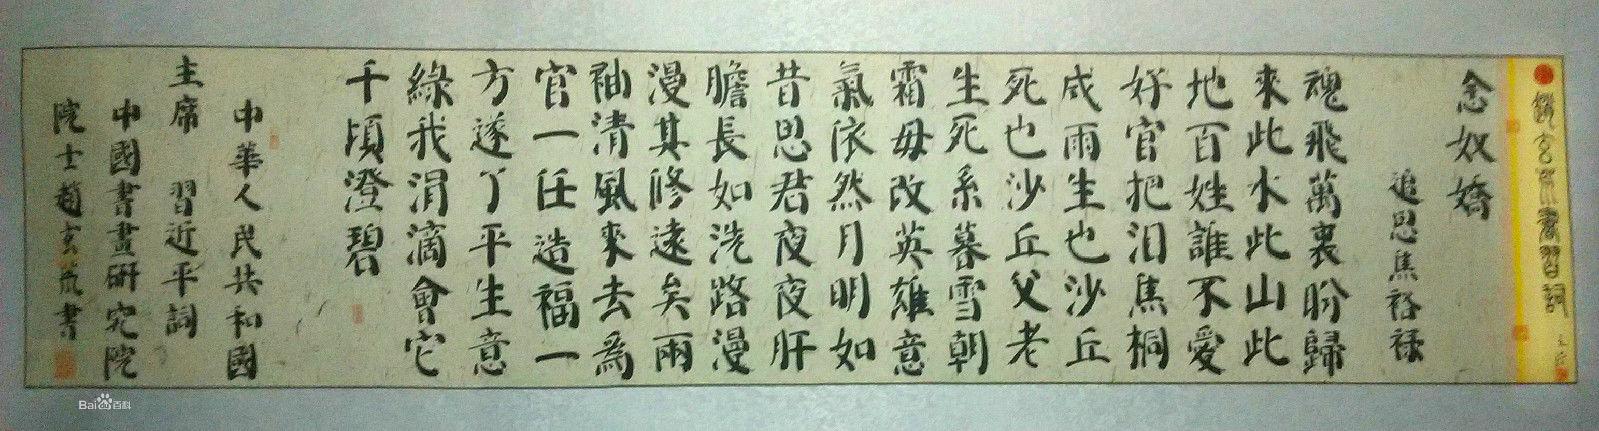 玄 書習詞
念奴嬌
追思焦裕祿
魂飛萬裏盼歸
來此水此山此
地百姓誰不愛
好官把泪焦桐
成雨生也沙丘
死也沙丘父老
生死系暮雪朝
霜毋改英雄意
氣依然月明如
昔思君夜夜肝
膽長如洗路漫
漫其修遠矣兩
袖清風來去爲
官一任造福一
方遂了平生意
綠我涓滴會它
千頃澄碧
中華人民共和國
主席 習近平詞
中國書畫研究院
院士趙玄 書
Bai 百科